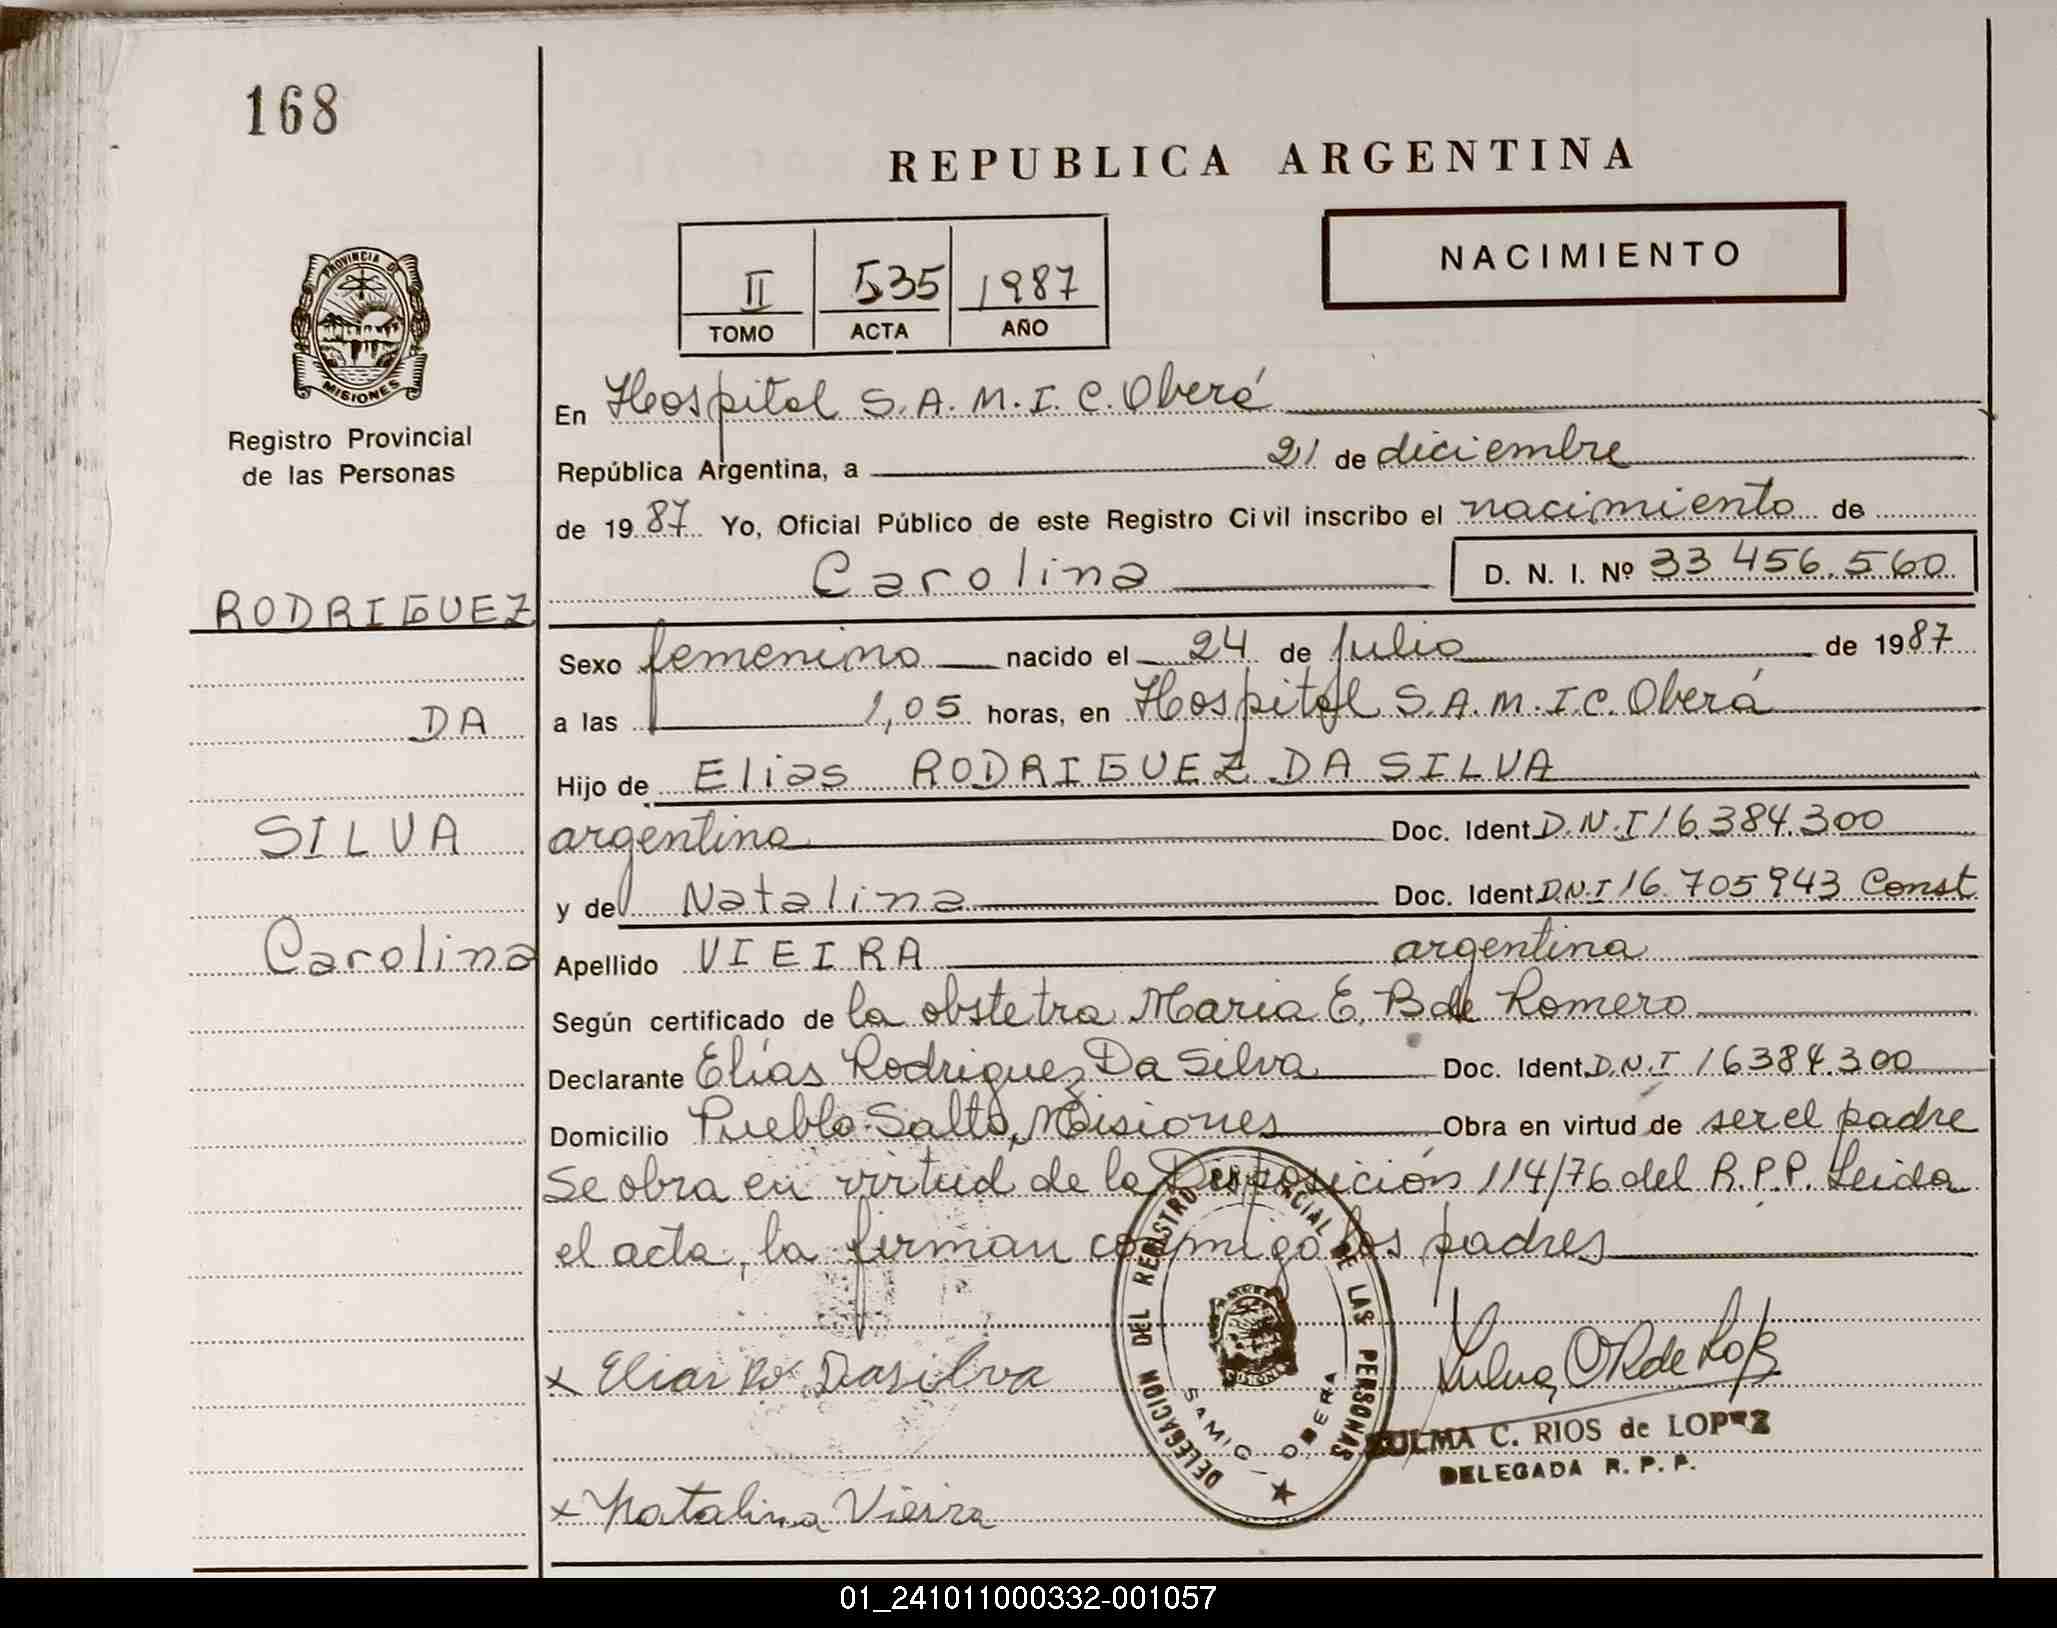 168
REPUBLICA ARGENTINA
NACIMIENTO
II 535 1987
TOMO ACTA AÑO
PROVINCIA DE
MISIONES
Registro Provincial
de las Personas
RODRIGUEZ
DA
SILVA
Carolina
En Hospital S.A.M.I.C. Oberá
República Argentina, a 21 de diciembre
de 1987 Yo, Oficial Público de este Registro Civil inscribo el nacimiento de
Carolina D. N. I. Nº 33 456.560
Sexo femenino nacido el 24 de julio de 1987
a las 1,05 horas, en Hospital S.A.M.I.C. Oberá
Hijo de Elias RODRIGUEZ DA SILVA
argentino Doc. Ident. D.N.I 16.384.300
y de Natalina Doc. Ident. D.N.I 16.705943 Const
Apellido VIEIRA argentina
Según certificado de la obstetra Maria E. B de Romero
Declarante Elías Rodriguez Da Silva Doc. Ident. D.N.I 16384.300
Domicilio Pueblo Salto, Misiones Obra en virtud de ser el padre
Se obra en virtud de la Disposición 114/76 del R.P.P. Leida
el acta, la firman conmigo los padres
x Elias Ro Dasilva
x Natalina Vieira
DELEGACION DEL REGISTRO PROVINCIAL DE LAS PERSONAS
SAMIC - OBERA
MISIONES
ZULMA C. RIOS de LOPEZ
DELEGADA R. P. P.
01_241011000332-001057